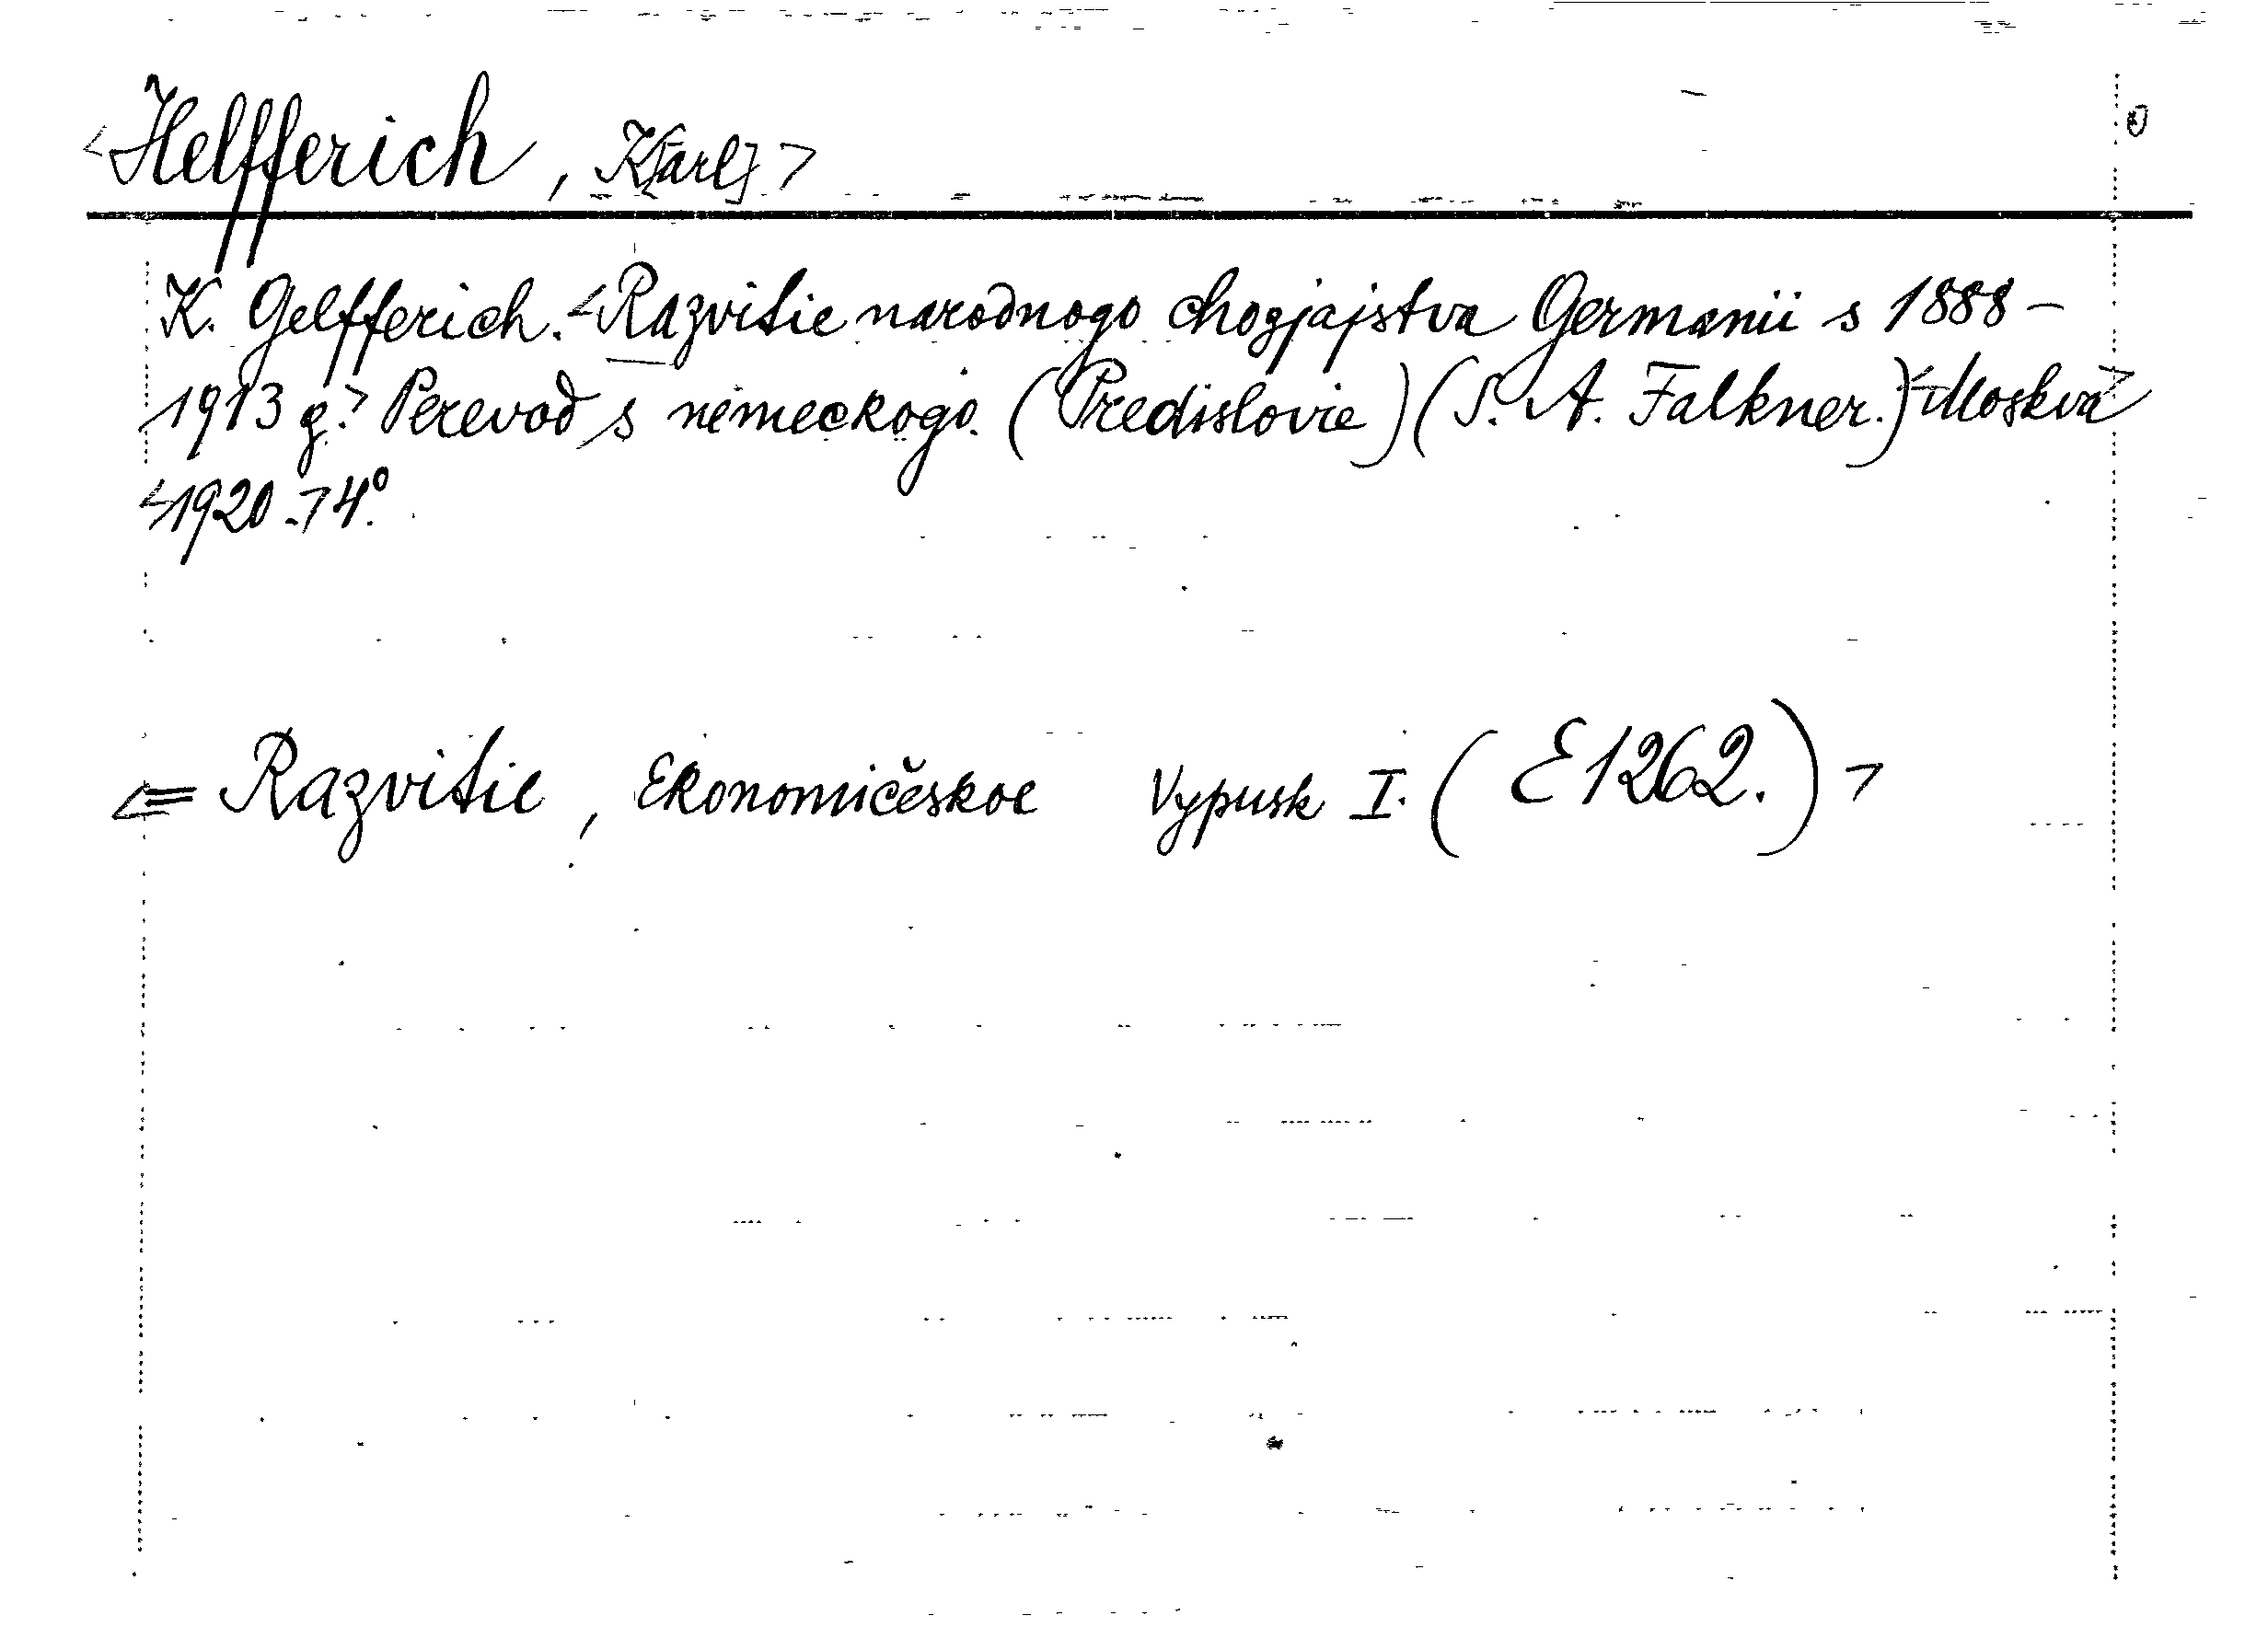 <Helfferich, K[arl]>
K. Gelfferich. <Razvitie narodnogo chozjajstva Germanii s 1888-
1913 g.> Perevod s nemeckogo. (Predislovie) (S. A. Falkner.) <Moskva>
<1920.> 4°.
<= Razvitie, Ekonomičeskoe Vypusk I. (E 1262.)>